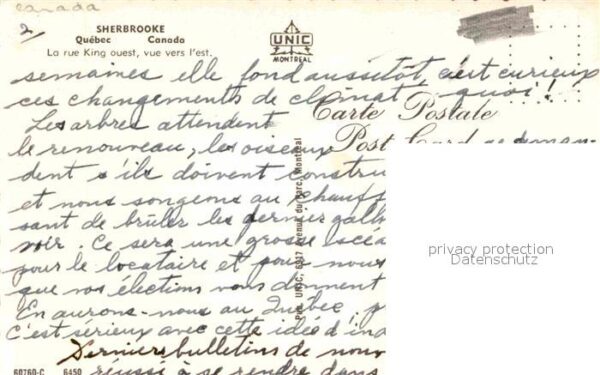 canada
2/
SHERBROOKE
Québec Canada
La rue King ouest, vue vers l'est.
UNIC
MONTREAL
semaines elle fond aussitôt, c'est curieux
ces changements de climat, quoi!
Carte Postale
Les arbres attendent
Post Card
le renouveau, les oiseaux se deman-
dent s'ils doivent constru
et nous songeons au chauff
sant de brûler les dernier gall
voir. Ce sera une grosse
pour le locataire et pour nous
que vos élections vous donnent
En aurons-nous au Québec,
C'est sérieux avec cette idée d'ind
Derniers bulletins de nouv
réussi à se rendre dans
60760-C 6450
Pub. UNIC, 6337 Avenue du Parc, Montréal
privacy protection
Datenschutz